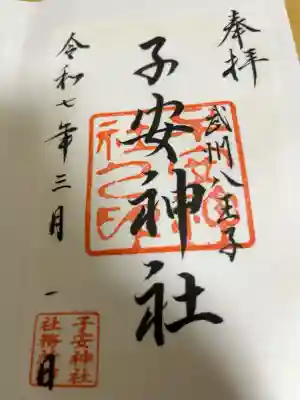 奉拝
武州八王子
子安神社
令和七年三月一日
子安神社
社務所